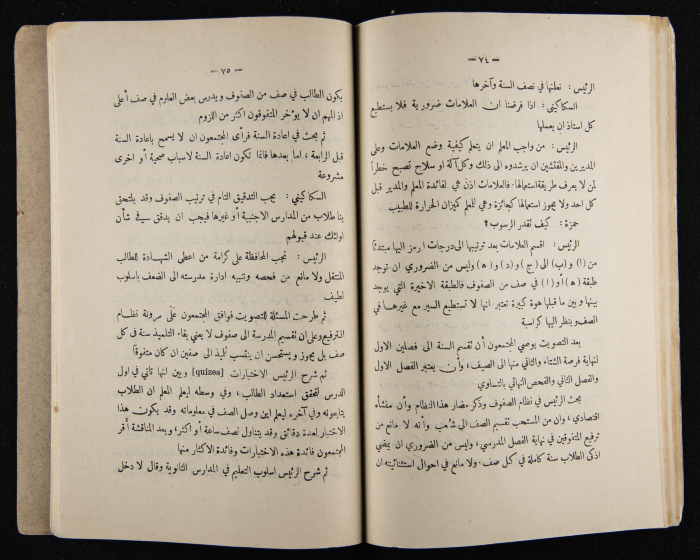 — ٧٤ —
الرئيس : نعلنها في نصف السنة وآخرها
السكاكيني : اذا فرضنا ان العلامات ضرورية فلا يستطيع
كل استاذ ان يعملها
الرئيس : من واجب المعلم ان يتعلم كيفية وضع العلامات وعلى
المديرين والمفتشين ان يرشدوه الى ذلك وكل آلة او سلاح تصبح خطراً
لمن لا يعرف طريقة استعمالها. فالعلامات اذن هي لفائدة المعلم والمدير قبل
كل احد ولا يجوز استعمالها كجائزة وهي للمعلم كميزان الحرارة للطبيب
حمزة : كيف نقدر الرسوب؟
الرئيس : اقسم العلامات بعد ترتيبها الى درجات ارمز اليها مبتدئاً
من (ا) و(ب) الى (ج) و(د) و(ه) وليس من الضروري ان توجد
طبقة (ه) أو (ا) في صف من الصفوف فالطبقة الاخيرة التي يوجد
بينها وبين ما قبلها هوة كبيرة تعتبر انها لا تستطيع السير مع غيرها في
الصف وينظر اليها كراسبة
بعد التصويت يوصي المجتمعون أن تقسيم السنة الى فصلين الاول
لنهاية فرصة الشتاء والثاني منها الى الصيف، وأن يعتبر الفصل الاول
والفصل الثاني والفحص النهائي بالتساوي
بحث الرئيس في نظام الصفوف وذكر مضار هذا النظام وأن منشأه
اقتصادي، وان من المستحب تقسيم الصف الى شُعب وأنه لا مانع من
ترفيع المتفوقين في نهاية الفصل المدرسي، وليس من الضروري ان يمضي
اذكى الطلاب سنة كاملة في كل صف. ولا مانع في احوال استثنائية ان
— ٧٥ —
يكون الطالب في صف من الصفوف ويدرس بعض العلوم في صف أعلى
اذ المهم ان لا يؤخر المتفوقون اكثر من اللزوم
ثم بحث في اعادة السنة فرأى المجتمعون ان لا يسمح باعادة السنة
قبل الرابعة، اما بعدها فانما تكون اعادة السنة لاسباب صحية أو اخرى
مشروعة
السكاكيني : يجب التدقيق التام في ترتيب الصفوف وقد يلتحق
بنا طلاب من المدارس الاجنبية أو غيرها فيجب ان يدقق في شأن
اولئك عند قبولهم
الرئيس : تجب المحافظة على كرامة من اعطى الشهادة للطالب
المنتقل ولا مانع من فحصه وتنبيه ادارة مدرسته الى الضعف باسلوب
لطيف
ثم طرحت المسئلة للتصويت فوافق المجتمعون عَلَى مرونة نظام
الترفيع وعلى ان تقسيم المدرسة الى صفوف لا يعني بقاء التلميذ سنة في كل
صف بل يجوز ويستحسن ان ينتسب تلميذ الى صفين ان كان متفوقاً
ثم شرح الرئيس الاختبارات [quizes] وبين انها تاتي في اول
الدرس لتحقق استعداد الطالب، وفي وسطه ليعلم المعلم ان الطلاب
يتابعونه وفي آخره ليعلم اين وصل الصف في معلوماته وقد يكون هذا
الاختبار لعدة دقائق وقد يتناول نصف ساعة أو اكثر، وبعد المناقشة أقر
المجتمعون فائدة هذه الاختبارات وفائدة الاكثار منها
ثم شرح الرئيس اسلوب التعليم في المدارس الثانوية وقال لا دخل